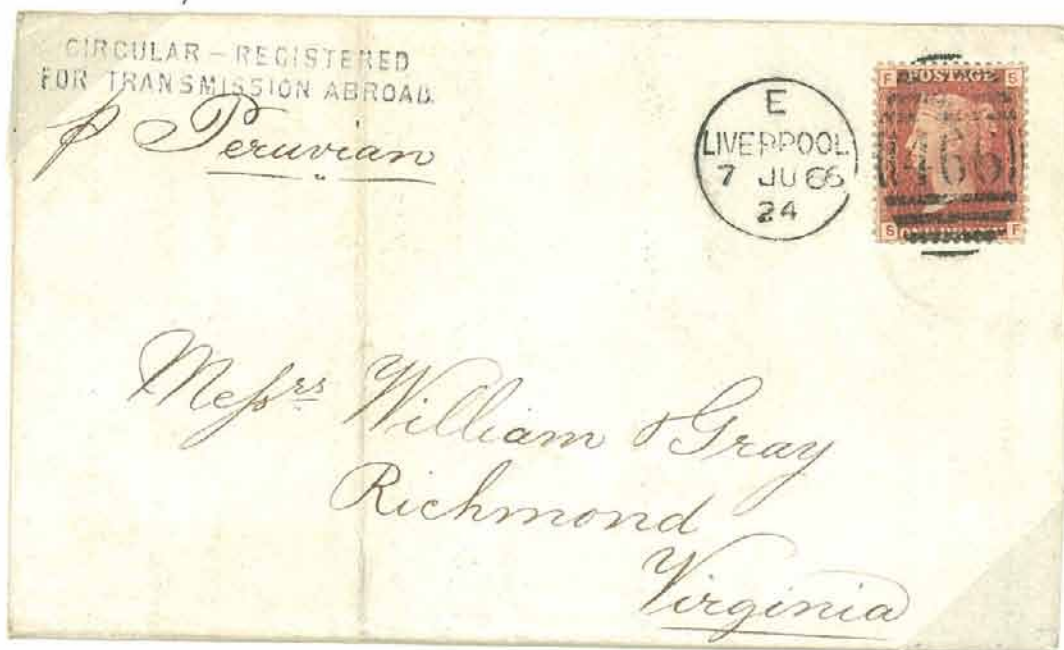 CIRCULAR – REGISTERED
FOR TRANSMISSION ABROAD.
p Peruvian
E
LIVERPOOL
7 JU 66
24
F POSTAGE S
466
S F
Messrs William & Gray
Richmond
Virginia